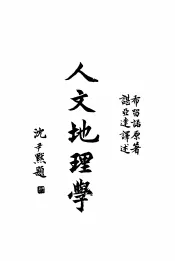 希留諾原著
諶亞達譯述
人文地理學
沈尹默題